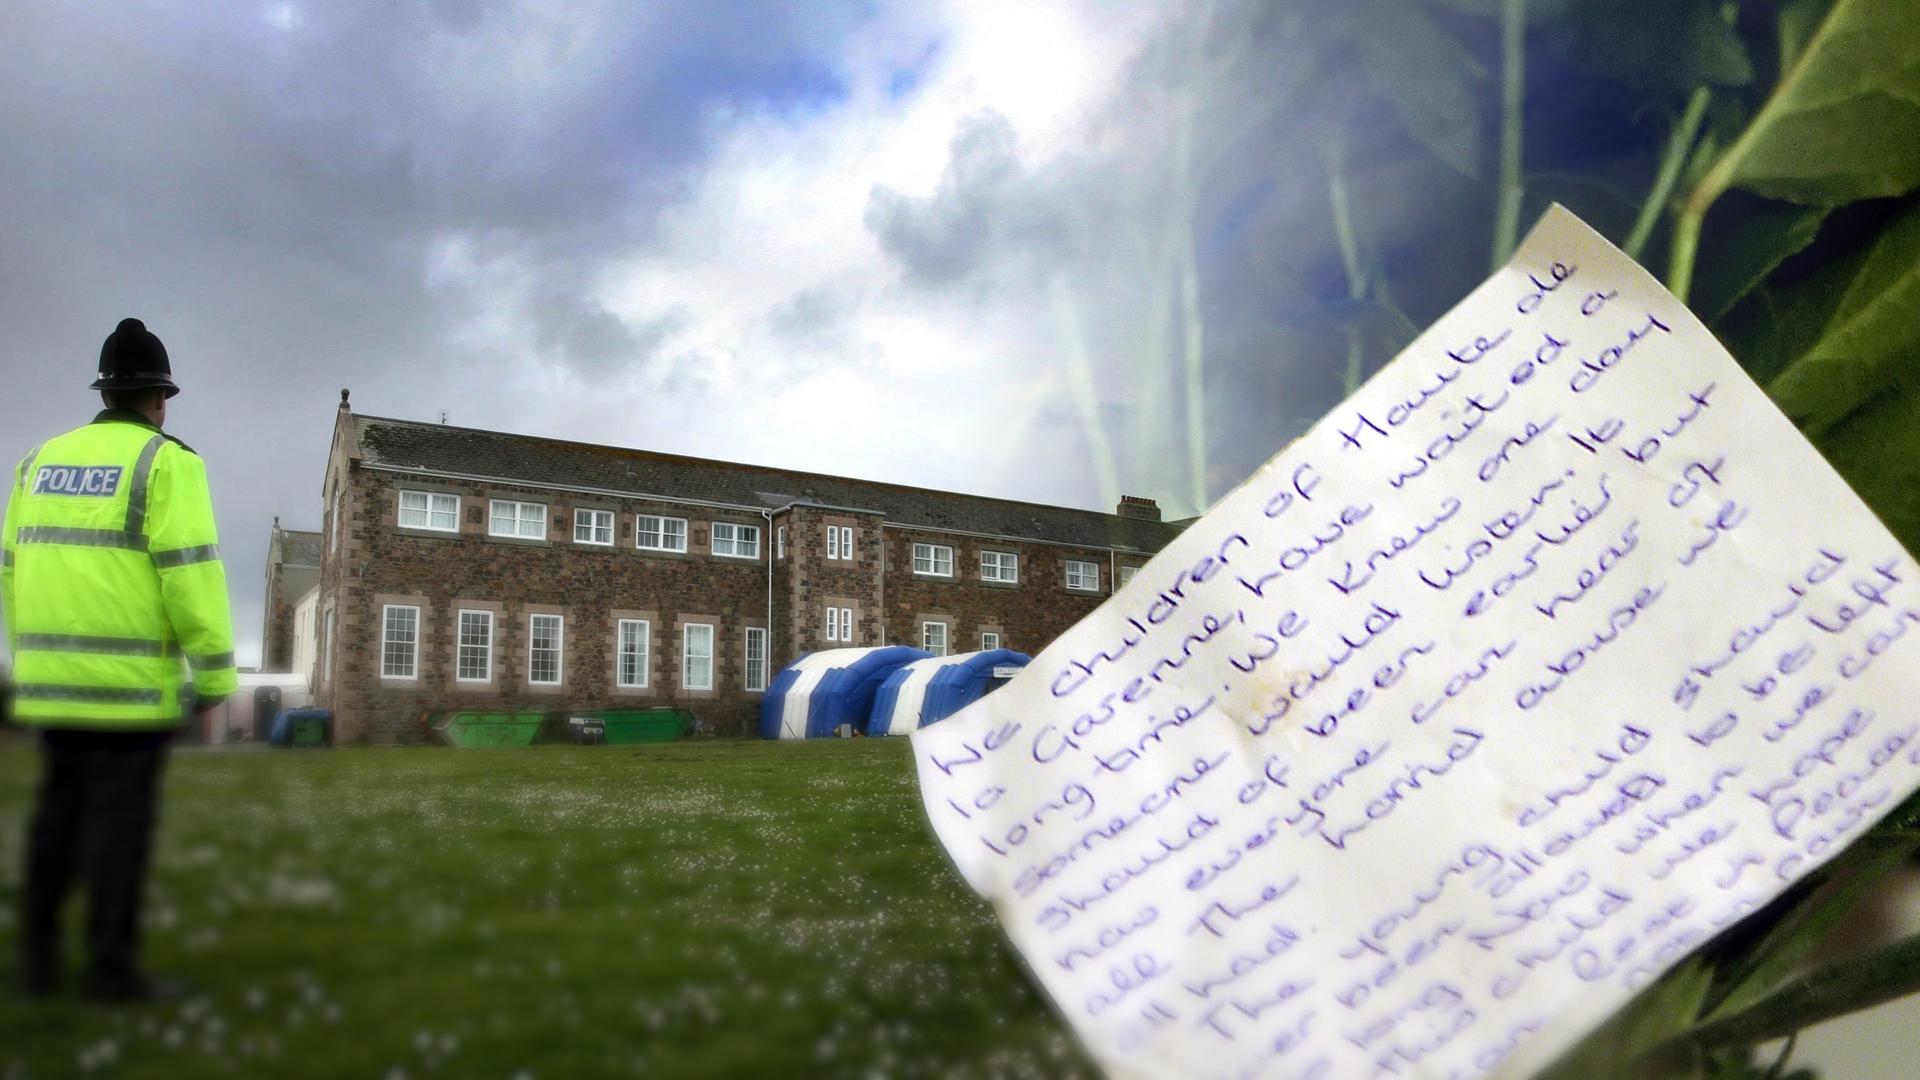 POLICE
We children of Haute de
la Garenne, have waited a
long time. We knew one day
someone would listen. It
should of been earlier but
now everyone can hear of
all The horrid abuse we
all had.
The young child should
ver been allowed to be left
long Now when we can
this child we hope
can Rest in Peace